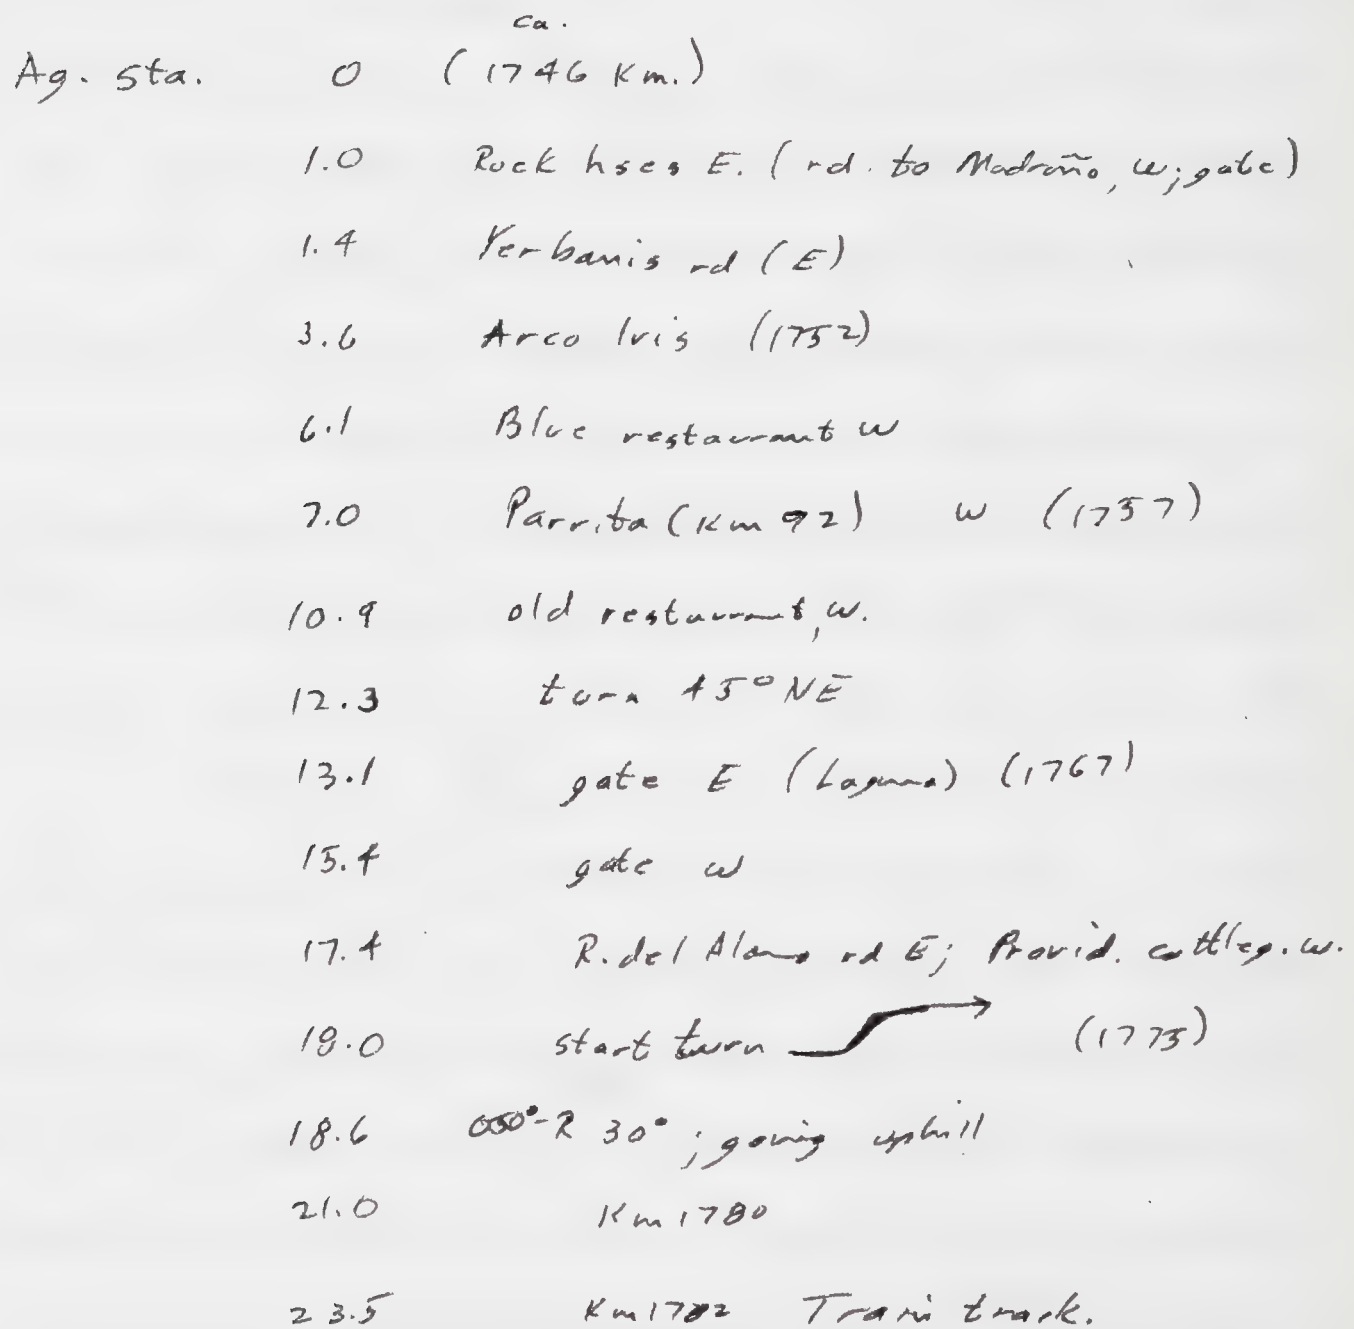 ca.
Ag. sta. 0 (1746 Km.)
1.0 Rock hses E. (rd. to Madroño, W; gate)
1.4 Yerbanis rd (E)
3.6 Arco Iris (1752)
6.1 Blue restaurant W
7.0 Parrita (Km 92) W (1757)
10.9 old restaurant, W.
12.3 turn 45° NE
13.1 gate E (Laguna) (1767)
15.4 gate W
17.4 R. del Alamo rd E; Provid. cattleg. W.
18.0 start turn (1775)
18.6 050°-R 30°; going uphill
21.0 Km 1780
23.5 Km 1782 Train track.